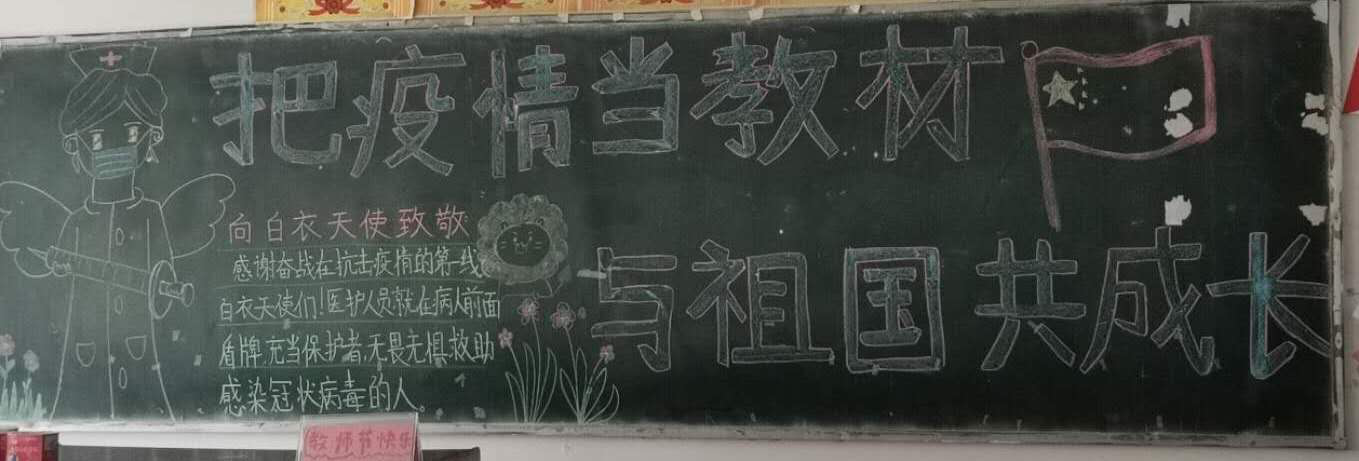 把疫情当教材
与祖国共成长
向白衣天使致敬
感谢奋战在抗击疫情的第一线
白衣天使们！医护人员就在病人前面
盾牌充当保护者,无畏无惧救助
感染冠状病毒的人。
教师节快乐